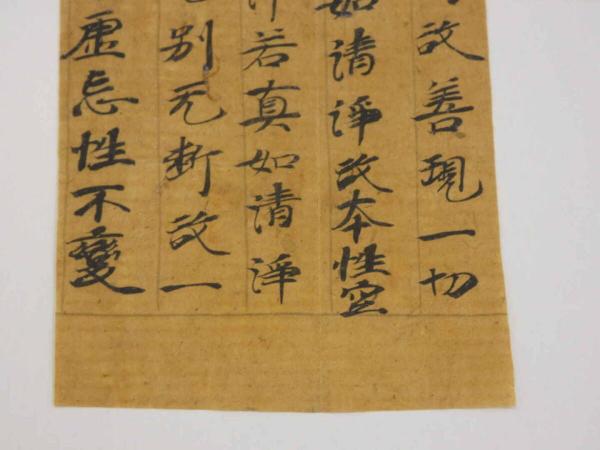 故善現一切
如清淨故本性空
若真如清淨
别无断故一
虚忘性不變